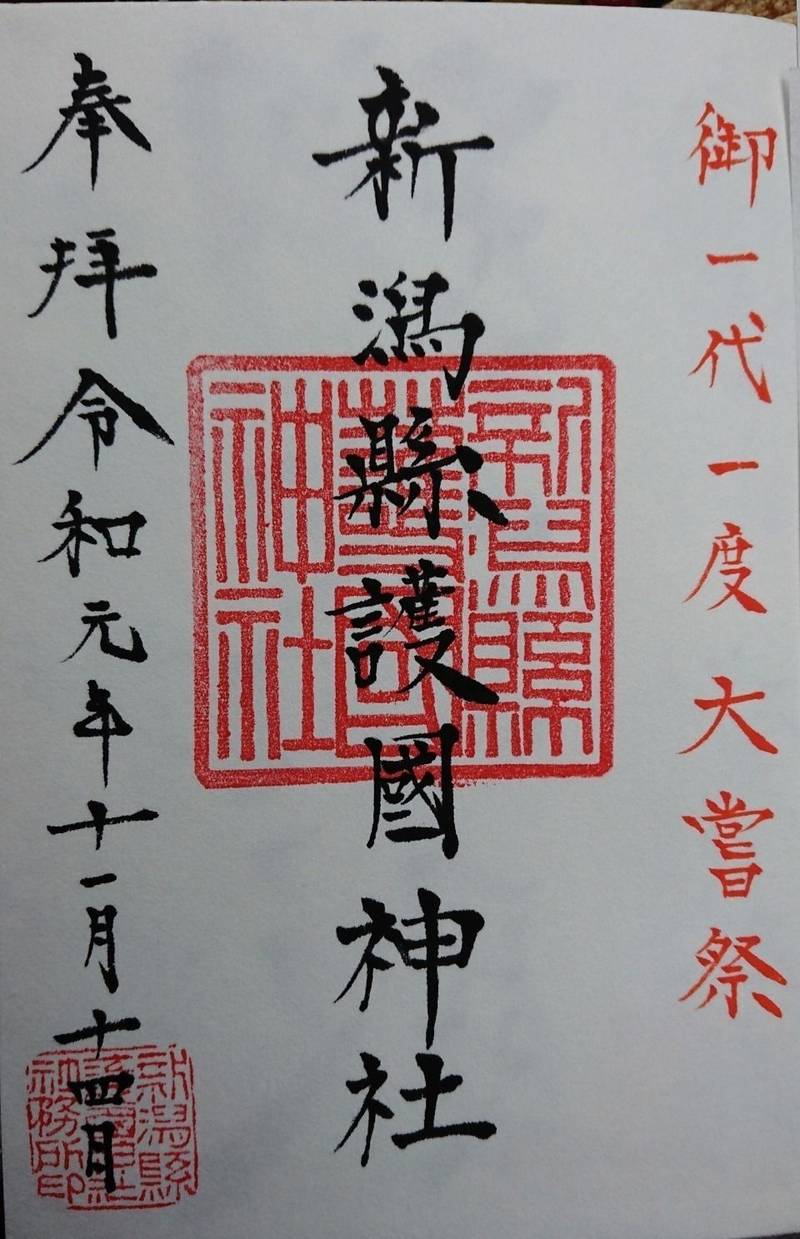 御一代一度大嘗祭
新潟縣護國神社
奉拝令和元年十一月十四日
新潟縣
護國
神社
新潟縣
護國神社
社務所印